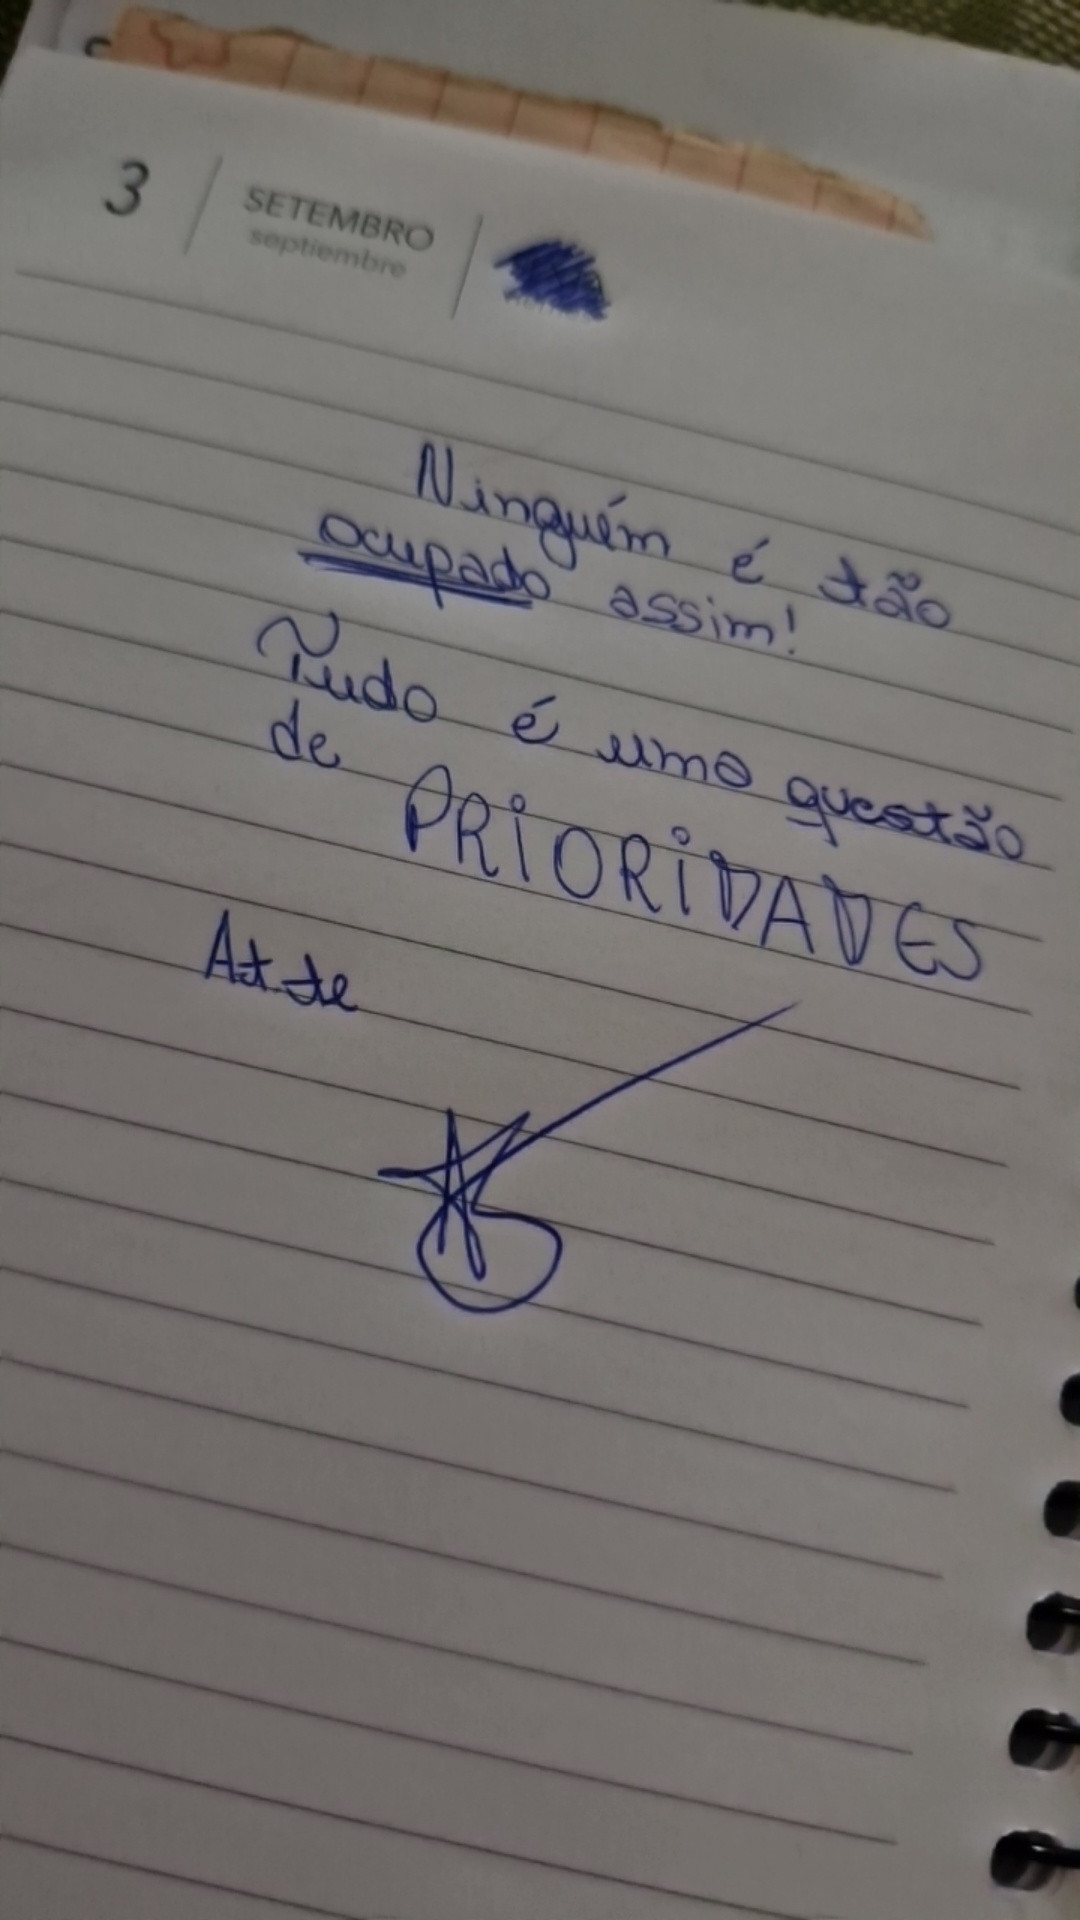 3 SETEMBRO
septiembre
Ninguém é tão
ocupado assim!
Tudo é uma questão
de
PRiORiDADES
Att te